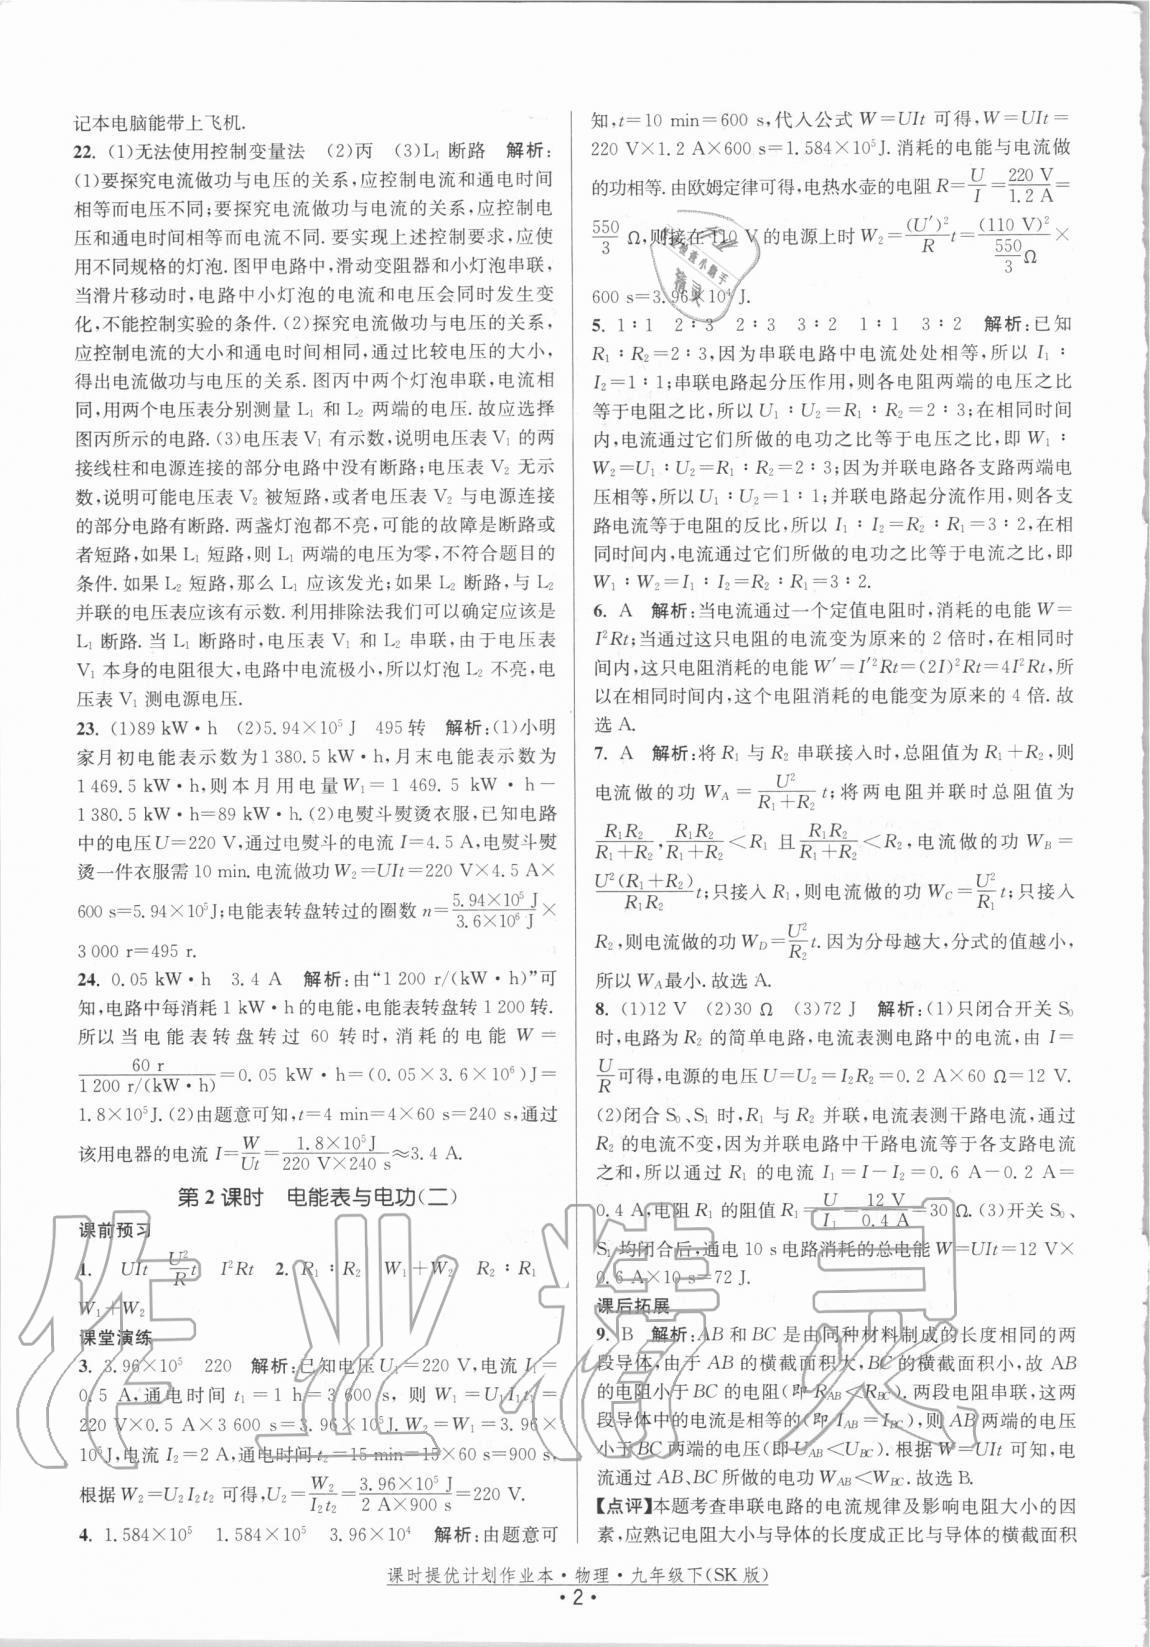 记本电脑能带上飞机.
22. (1)无法使用控制变量法 (2)丙 (3)L₁ 断路 解析:
(1)要探究电流做功与电压的关系,应控制电流和通电时间
相等而电压不同;要探究电流做功与电流的关系,应控制电
压和通电时间相等而电流不同. 要实现上述控制要求,应使
用不同规格的灯泡. 图甲电路中,滑动变阻器和小灯泡串联,
当滑片移动时,电路中小灯泡的电流和电压会同时发生变
化,不能控制实验的条件. (2)探究电流做功与电压的关系,
应控制电流的大小和通电时间相同,通过比较电压的大小,
得出电流做功与电压的关系. 图丙中两个灯泡串联,电流相
同,用两个电压表分别测量 L₁ 和 L₂ 两端的电压. 故应选择
图丙所示的电路. (3)电压表 V₁ 有示数,说明电压表 V₁ 的两
接线柱和电源连接的部分电路中没有断路;电压表 V₂ 无示
数,说明可能电压表 V₂ 被短路,或者电压表 V₂ 与电源连接
的部分电路有断路. 两盏灯泡都不亮,可能的故障是断路或
者短路,如果 L₁ 短路,则 L₁ 两端的电压为零,不符合题目的
条件. 如果 L₂ 短路,那么 L₁ 应该发光;如果 L₂ 断路,与 L₂
并联的电压表应该有示数. 利用排除法我们可以确定应该是
L₁ 断路. 当 L₁ 断路时,电压表 V₁ 和 L₂ 串联,由于电压表
V₁ 本身的电阻很大,电路中电流极小,所以灯泡 L₂ 不亮,电
压表 V₁ 测电源电压.
23. (1)89 kW·h (2)5.94×10⁵ J 495 转 解析:(1)小明
家月初电能表示数为 1 380.5 kW·h,月末电能表示数为
1 469.5 kW·h,则本月用电量 W₁=1 469.5 kW·h-
1 380.5 kW·h=89 kW·h. (2)电熨斗熨烫衣服,已知电路
中的电压 U=220 V,通过电熨斗的电流 I=4.5 A,电熨斗熨
烫一件衣服需 10 min. 电流做功 W₂=UIt=220 V×4.5 A×
600 s=5.94×10⁵J;电能表转盘转过的圈数 n=5.94×10⁵ J/3.6×10⁶ J×
3 000 r=495 r.
24. 0.05 kW·h 3.4 A 解析:由“1 200 r/(kW·h)”可
知,电路中每消耗 1 kW·h 的电能,电能表转盘转 1 200 转.
所以当电能表转盘转过 60 转时,消耗的电能 W=
60 r/1 200 r/(kW·h)=0.05 kW·h=(0.05×3.6×10⁶)J=
1.8×10⁵J. (2)由题意可知,t=4 min=4×60 s=240 s,通过
该用电器的电流 I=W/Ut=1.8×10⁵J/220 V×240 s≈3.4 A.
第 2 课时 电能表与电功(二)
课前预习
1. UIt U²/R t I²Rt 2. R₁∶R₂ W₁+W₂ R₂∶R₁
W₁+W₂
课堂演练
3. 3.96×10⁵ 220 解析:已知电压 U₁=220 V,电流 I₁=
0.5 A,通电时间 t₁=1 h=3 600 s,则 W₁=U₁I₁t₁=
220 V×0.5 A×3 600 s=3.96×10⁵J. W₂=W₁=3.96×
10⁵J,电流 I₂=2 A,通电时间 t₂=15 min=15×60 s=900 s,
根据 W₂=U₂I₂t₂ 可得,U₂=W₂/I₂t₂=3.96×10⁵J/2 A×900 s=220 V.
4. 1.584×10⁵ 1.584×10⁵ 3.96×10⁴ 解析:由题意可
知,t=10 min=600 s,代入公式 W=UIt 可得,W=UIt=
220 V×1.2 A×600 s=1.584×10⁵J. 消耗的电能与电流做
的功相等. 由欧姆定律可得,电热水壶的电阻 R=U/I=220 V/1.2 A=
550/3 Ω,则接在 110 V 的电源上时 W₂=(U′)²/R t=(110 V)²/(550/3 Ω)×
600 s=3.96×10⁴ J.
5. 1∶1 2∶3 2∶3 3∶2 1∶1 3∶2 解析:已知
R₁∶R₂=2∶3,因为串联电路中电流处处相等,所以 I₁∶
I₂=1∶1;串联电路起分压作用,则各电阻两端的电压之比
等于电阻之比,所以 U₁∶U₂=R₁∶R₂=2∶3;在相同时间
内,电流通过它们所做的电功之比等于电压之比,即 W₁∶
W₂=U₁∶U₂=R₁∶R₂=2∶3;因为并联电路各支路两端电
压相等,所以 U₁∶U₂=1∶1;并联电路起分流作用,则各支
路电流等于电阻的反比,所以 I₁∶I₂=R₂∶R₁=3∶2,在相
同时间内,电流通过它们所做的电功之比等于电流之比,即
W₁∶W₂=I₁∶I₂=R₂∶R₁=3∶2.
6. A 解析:当电流通过一个定值电阻时,消耗的电能 W=
I²Rt;当通过这只电阻的电流变为原来的 2 倍时,在相同时
间内,这只电阻消耗的电能 W′=I′²Rt=(2I)²Rt=4I²Rt,所
以在相同时间内,这个电阻消耗的电能变为原来的 4 倍. 故
选 A.
7. A 解析:将 R₁ 与 R₂ 串联接入时,总阻值为 R₁+R₂,则
电流做的功 W_A=U²/R₁+R₂ t;将两电阻并联时总阻值为
R₁R₂/R₁+R₂,R₁R₂/R₁+R₂<R₁ 且 R₁R₂/R₁+R₂<R₂,电流做的功 W_B=
U²(R₁+R₂)/R₁R₂ t;只接入 R₁,则电流做的功 W_C=U²/R₁ t;只接入
R₂,则电流做的功 W_D=U²/R₂ t. 因为分母越大,分式的值越小,
所以 W_A 最小. 故选 A.
8. (1)12 V (2)30 Ω (3)72 J 解析:(1)只闭合开关 S₀
时,电路为 R₂ 的简单电路,电流表测电路中的电流,由 I=
U/R可得,电源的电压 U=U₂=I₂R₂=0.2 A×60 Ω=12 V.
(2)闭合 S₀、S₁ 时,R₁ 与 R₂ 并联,电流表测干路电流,通过
R₂ 的电流不变,因为并联电路中干路电流等于各支路电流
之和,所以通过 R₁ 的电流 I₁=I-I₂=0.6 A-0.2 A=
0.4 A,电阻 R₁ 的阻值 R₁=U/I₁=12 V/0.4 A=30 Ω. (3)开关 S₀、
S₁ 均闭合后,通电 10 s 电路消耗的总电能 W=UIt=12 V×
0.6 A×10 s=72 J.
课后拓展
9. B 解析:AB 和 BC 是由同种材料制成的长度相同的两
段导体,由于 AB 的横截面积大,BC 的横截面积小,故 AB
的电阻小于 BC 的电阻(即 R_AB<R_BC). 两段电阻串联,这两
段导体中的电流是相等的(即 I_AB=I_BC),则 AB 两端的电压
小于 BC 两端的电压(即 U_AB<U_BC). 根据 W=UIt 可知,电
流通过 AB、BC 所做的电功 W_AB<W_BC. 故选 B.
【点评】本题考查串联电路的电流规律及影响电阻大小的因
素,应熟记电阻大小与导体的长度成正比与导体的横截面积
课时提优计划作业本·物理·九年级下(SK 版)
·2·
作业精灵